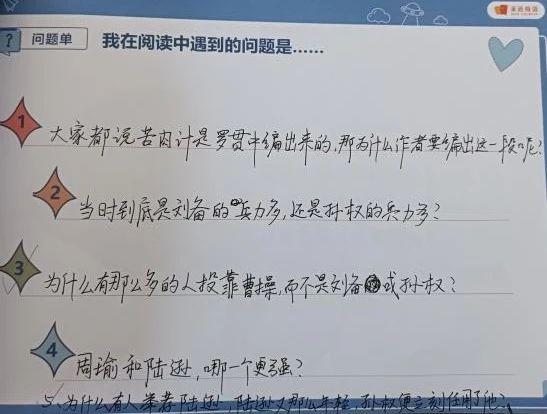 ?
问题单
我在阅读中遇到的问题是……
1
大家都说苦肉计是罗贯中编出来的,那为什么作者要编出这一段呢?
2
当时到底是刘备的兵力多,还是孙权的兵力多?
3
为什么有那么多的人投靠曹操,而不是刘备或孙权?
4
周瑜和陆逊,哪一个更强?
5、为什么有人举荐陆逊,陆逊又那么年轻,孙权便立刻任用了他?